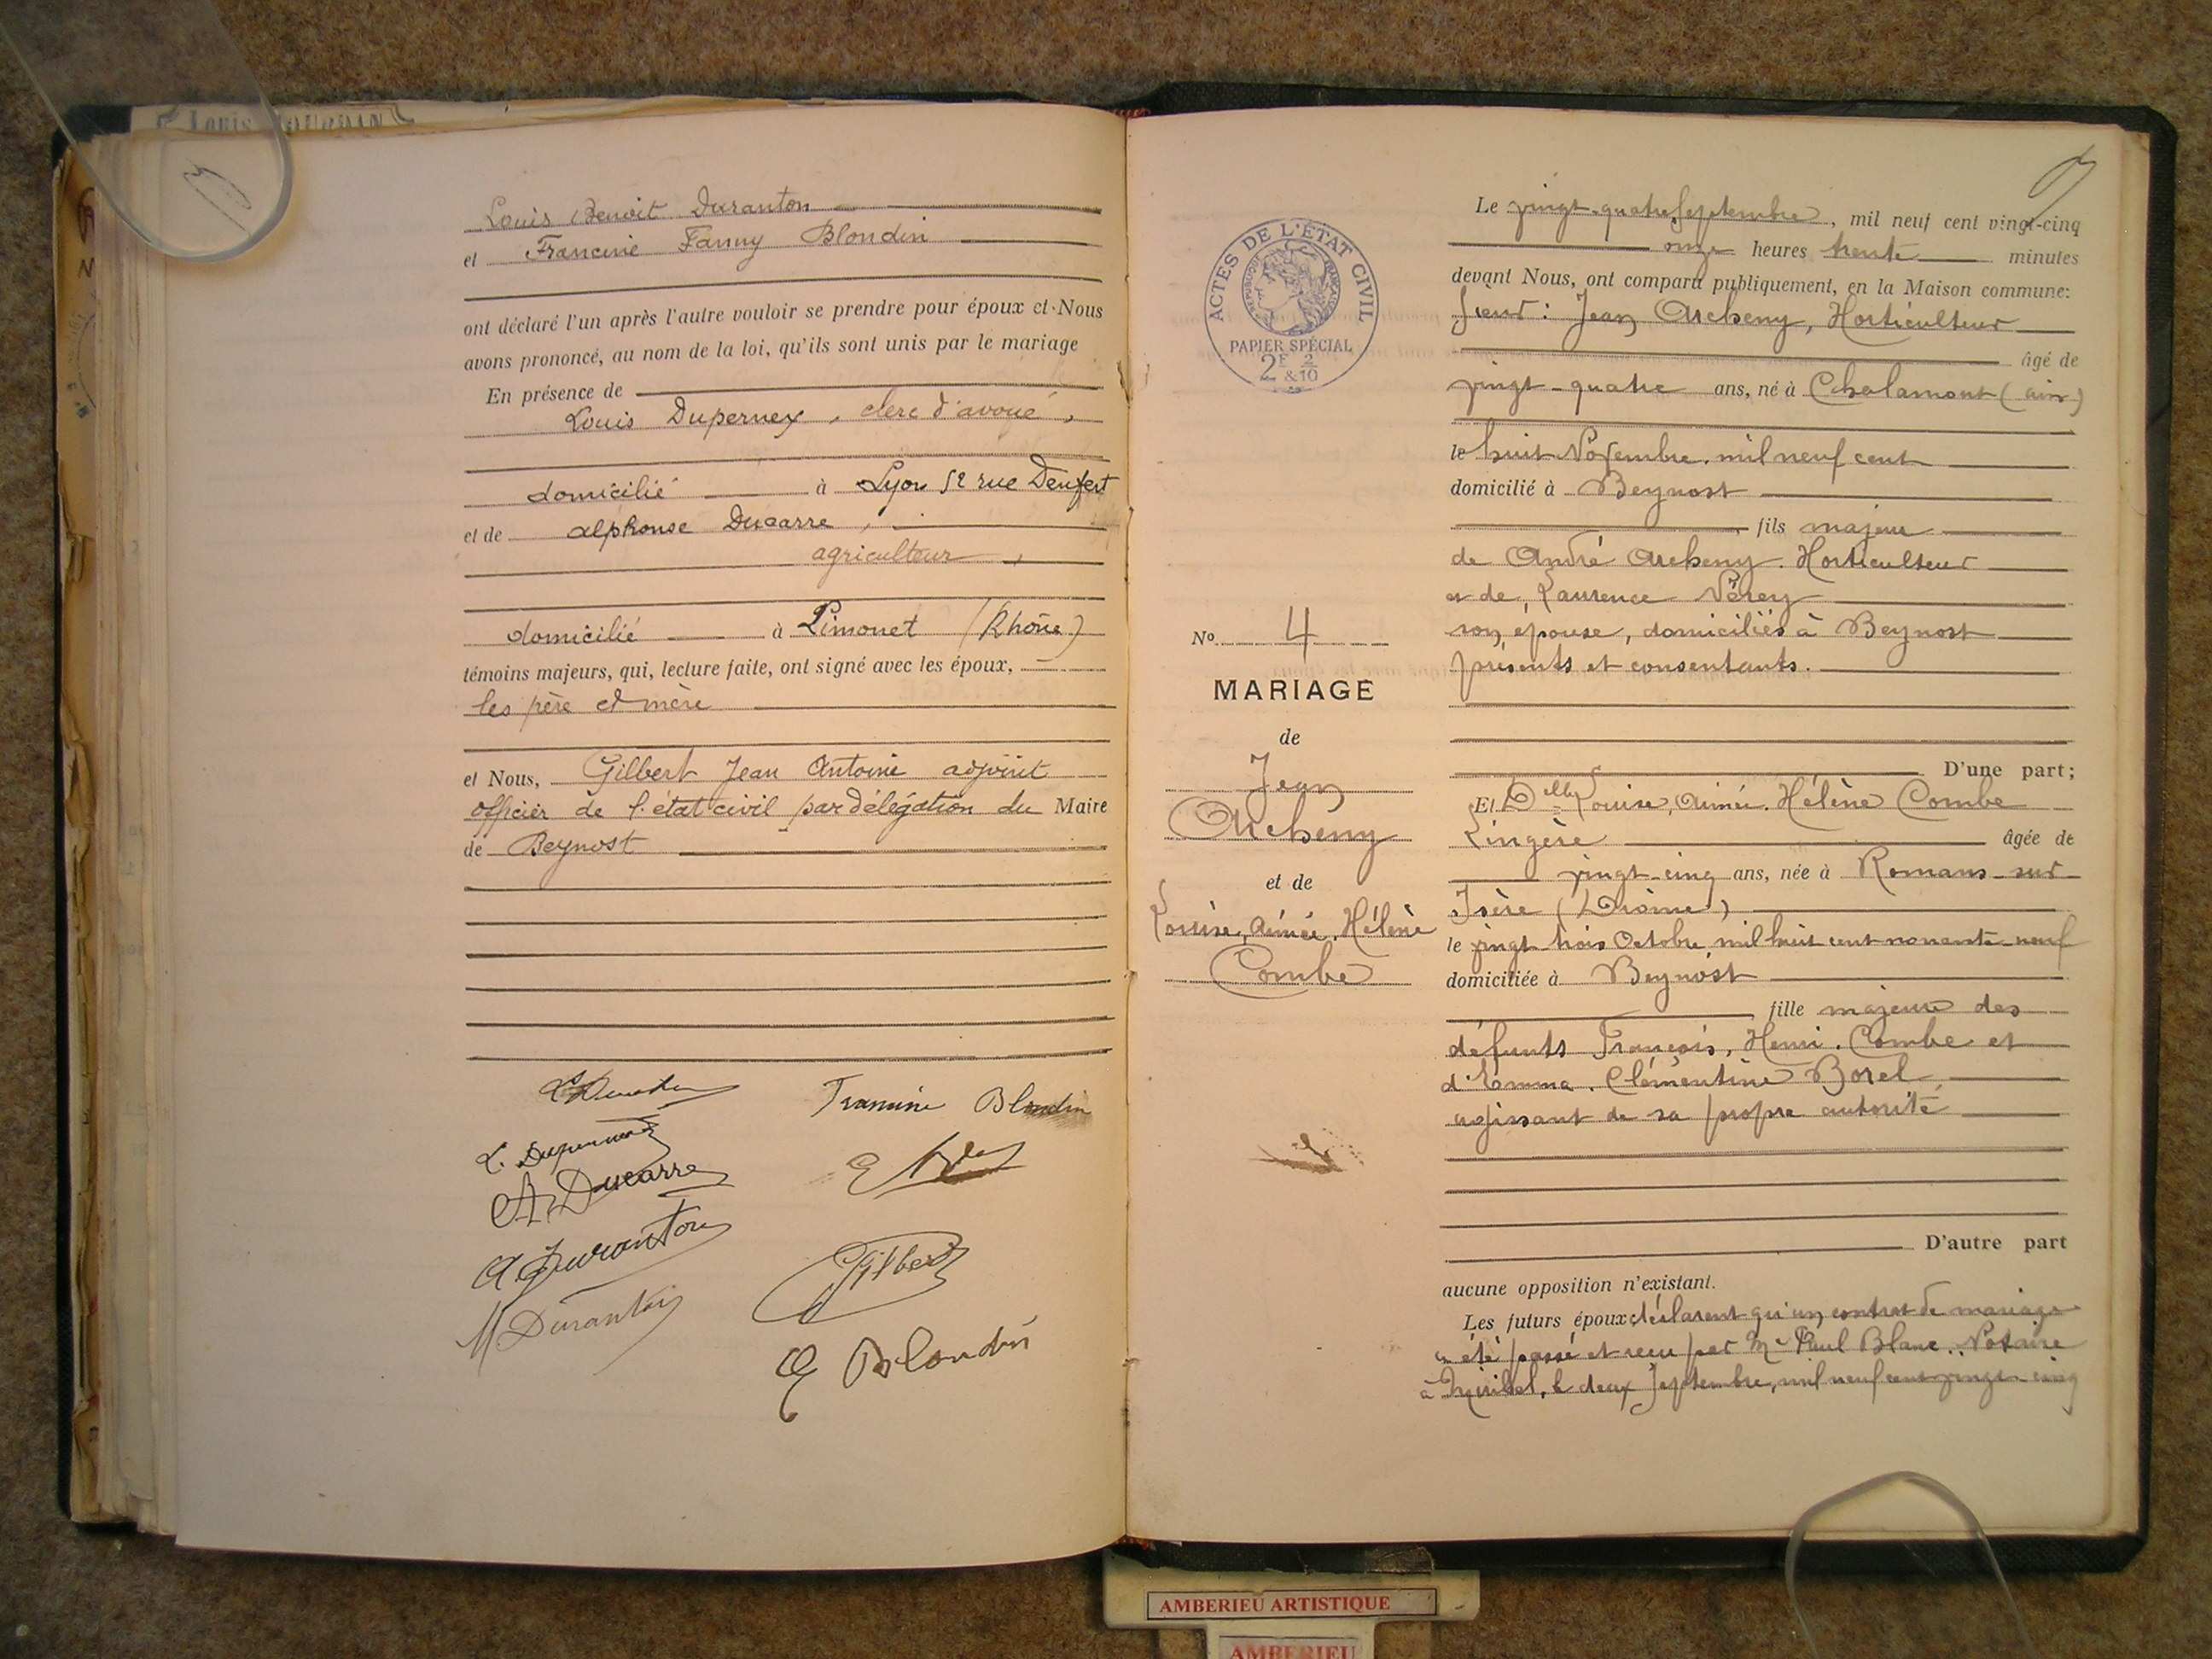 Louis Benoit Duranton
et Francine Fanny Blondin
ont déclaré l'un après l'autre vouloir se prendre pour époux et Nous
avons prononcé, au nom de la loi, qu'ils sont unis par le mariage
En présence de
Louis Dupernex, clerc d'avoué,
domicilié à Lyon 52 rue Denfert
et de alphonse Ducarre,
agriculteur,
domicilié à Limonet (Rhône)
témoins majeurs, qui, lecture faite, ont signé avec les époux,
les père et mère
et Nous, Gilbert Jean Antoine adjoint
officier de l'état civil par délégation du Maire
de Beynost
Francine Blondin
L. Dupernex
A. Ducarre
A. Duranton
Gilbert
M Duranton
E Blondin
ACTES DE L'ÉTAT CIVIL
REPUBLIQUE FRANÇAISE
PAPIER SPÉCIAL
2F 2
&10
No 4
MARIAGE
de
Jean
Archeny
et de
Louise, Aimée, Hélène
Combe
Le vingt-quatre Septembre, mil neuf cent vingt-cinq
onze heures trente minutes
devant Nous, ont comparu publiquement, en la Maison commune:
Sieur: Jean Archeny, Horticulteur
âgé de
vingt-quatre ans, né à Chalamont (ain)
le huit Novembre. mil neuf cent
domicilié à Beynost
fils majeur
de André Archeny. Horticulteur
et de, Laurence Vérey
son épouse, domiciliés à Beynost
présents et consentants.
D'une part;
Et Delle Louise, Aimée. Hélène Combe
Lingère âgée de
vingt-cinq ans, née à Romans-sur-
Isère (Drôme)
le vingt trois Octobre mil huit cent nonante-neuf
domiciliée à Beynost
fille majeure des
défunts François, Henri. Combe et
d'Emma. Clémentine Borel
agissant de sa propre autorité
D'autre part
aucune opposition n'existant.
Les futurs époux déclarent qu'un contrat de mariage
a été passé et reçu par Me Paul Blanc. Notaire
à Miribel, le deux Septembre, mil neuf cent vingt-cinq
AMBERIEU ARTISTIQUE
AMBERIEU